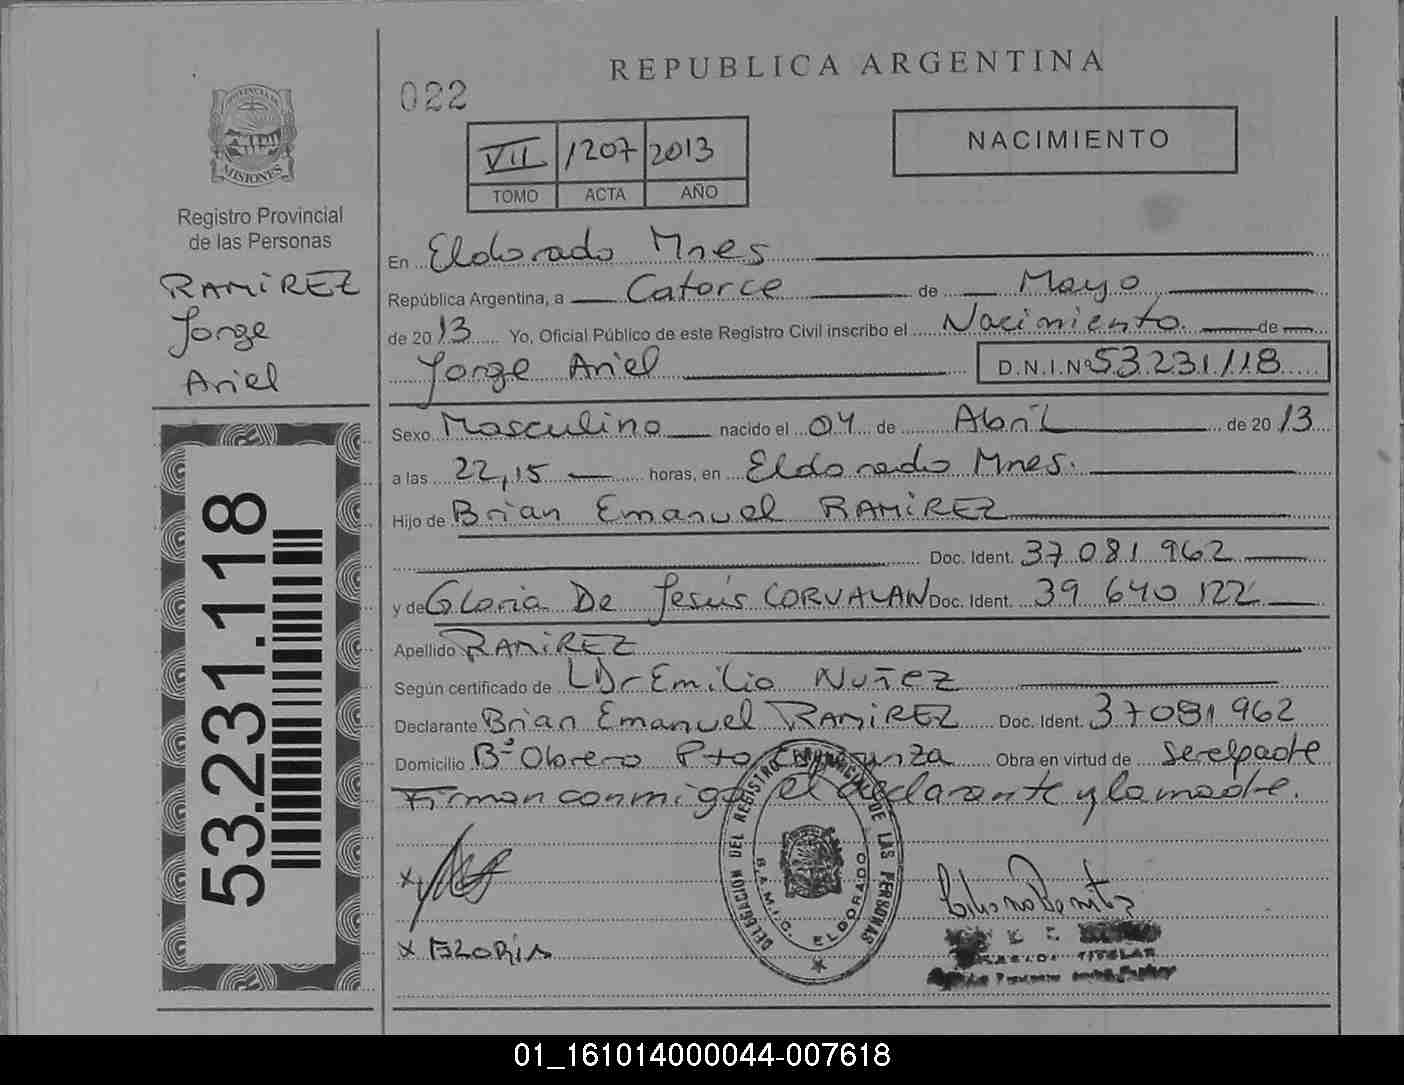 REPUBLICA ARGENTINA
022
NACIMIENTO
VII 1207 2013
TOMO ACTA AÑO
PROVINCIA DE
MISIONES
Registro Provincial
de las Personas
RAMIREZ
Jorge
Ariel
53.231.118
En Eldorado Mnes
República Argentina, a Catorce de Mayo
de 2013 Yo, Oficial Público de este Registro Civil inscribo el Nacimiento de
Jorge Ariel D.N.I.Nº 53.231.118
Sexo Masculino nacido el 04 de Abril de 2013
a las 22,15 horas, en Eldorado Mnes.
Hijo de Brian Emanuel RAMIREZ
Doc. Ident. 37.081.962
y de Gloria De Jesús CORVALAN Doc. Ident. 39 640 122
Apellido RAMIREZ
Según certificado de LDr Emilio NUÑEZ
Declarante Brian Emanuel RAMIREZ Doc. Ident. 37081962
Domicilio Bº Obrero Pto Obra en virtud de Ser el padre
Firman conmigo el declarante y la madre.
DELEGACION DEL REGISTRO PROVINCIAL DE LAS PERSONAS
S.A.M.I.C. ELDORADO
x
x
TITULAR
01_161014000044-007618